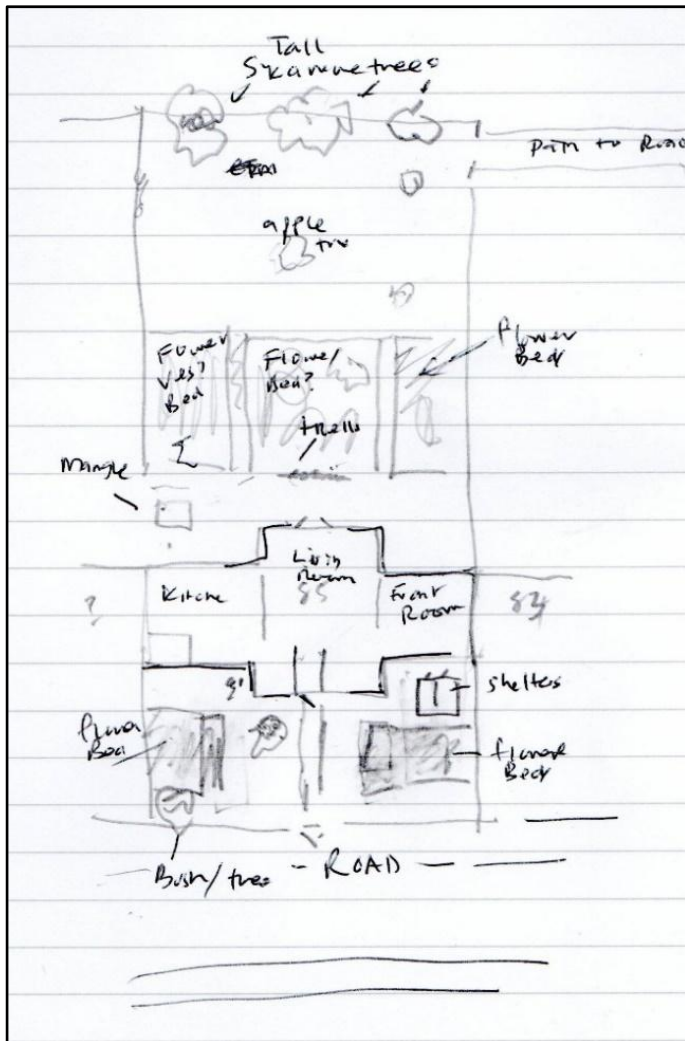 Tall
Sycamore trees
Path to Road
apple
tree
Flower
Veg?
Bed
Flower
Bed?
Flower
Bed
trellis
Mangle
Kitchen
Livin
Room
85
Front
Room
83
?
Shelters
flower
Bed
flower
Bed
Bush/tree
- ROAD -